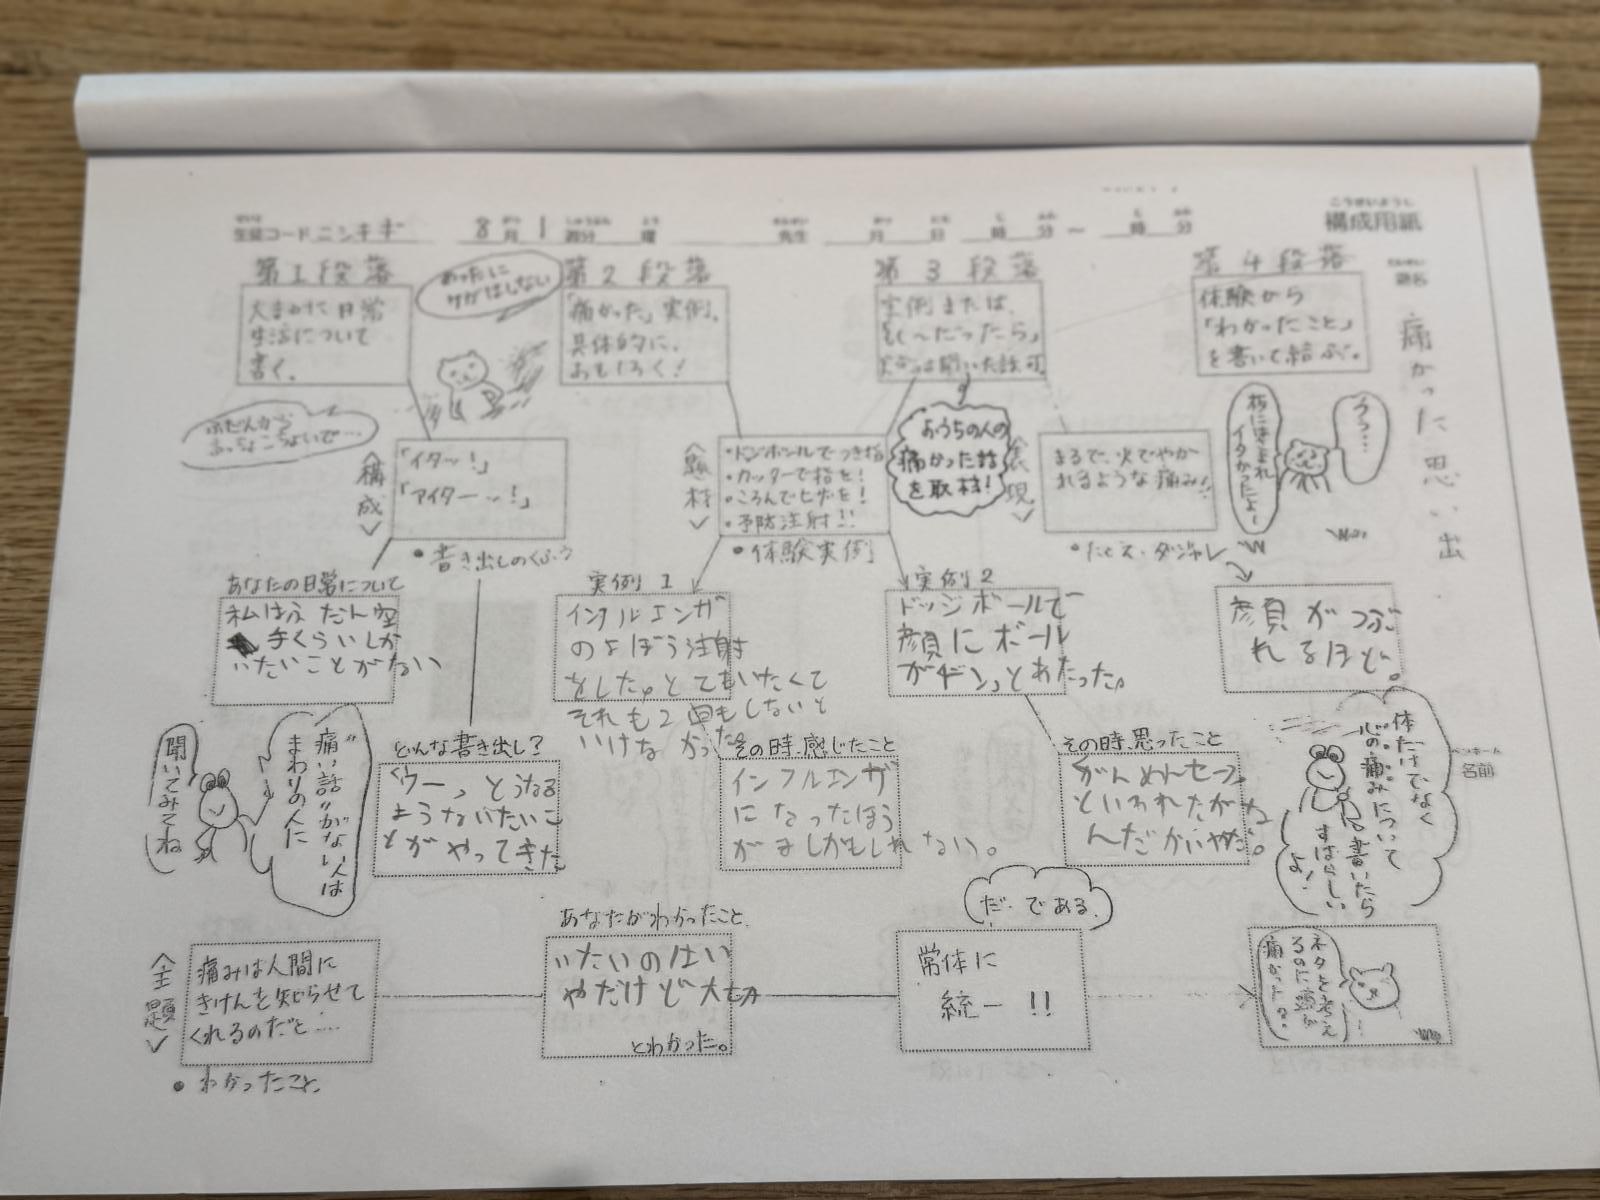 構成用紙
こうせいようし
生徒コード ニシキギ 8月 1週分 曜 先生 月 日 時 分 ～ 時 分
題名
痛かった思い出
第1段落
大まかに日常
生活について
書く。
めったに
ケガはしない
ふだんから
おっちょこちょいで…
第2段落
「痛かった」実例。
具体的に、
おもしろく!
第3段落
実例または、
もし〜だったら」
又は聞いた話可。
第4段落
体験から
「わかったこと」
を書いて結ぶ。
〈構成〉
「イタッ!」
「アイターッ!」
•書き出しのくふう
〈題材〉
・ドッジボールでつき指
・カッターで指を!
・ころんでヒザを!
・予防注射!!
•体験実例
おうちの人の
痛かった話
を取材!
〈表現〉
まるで、火でやか
れるような痛み!!
•たとえ・ダジャレ
イタかったよ〜
うう…
あなたの日常について
私はふだん空
手くらいしか
いたいことがない
実例1
インフルエンザ
のよぼう注射
をした。とてもいたくて
それも2回もしないと
いけなかった
実例2
ドッジボールで
顔にボール
がギンっとあたった。
顔がつぶ
れるほど。
聞いてみてね
"痛い話"がない人は
まわりの人に
どんな書き出し?
くウーっとうなる
ようないたいこ
とがやってきた
その時、感じたこと
インフルエンザ
になったほう
がましかもしれない。
その時、思ったこと
がんめんセーフ。
といわれたがな
んだかいやだ。
体だけでなく
心の痛みについて
書いたら
すばらしい
よ!
ペンネーム
名前
〈主題〉
痛みは人間に
きけんを知らせて
くれるのだと……
•わかったこと
あなたがわかったこと
いたいのはい
やだけど大切
とわかった。
だ・である
常体に
統一!!
ネタを考え
るのに頭が
痛かったよね。